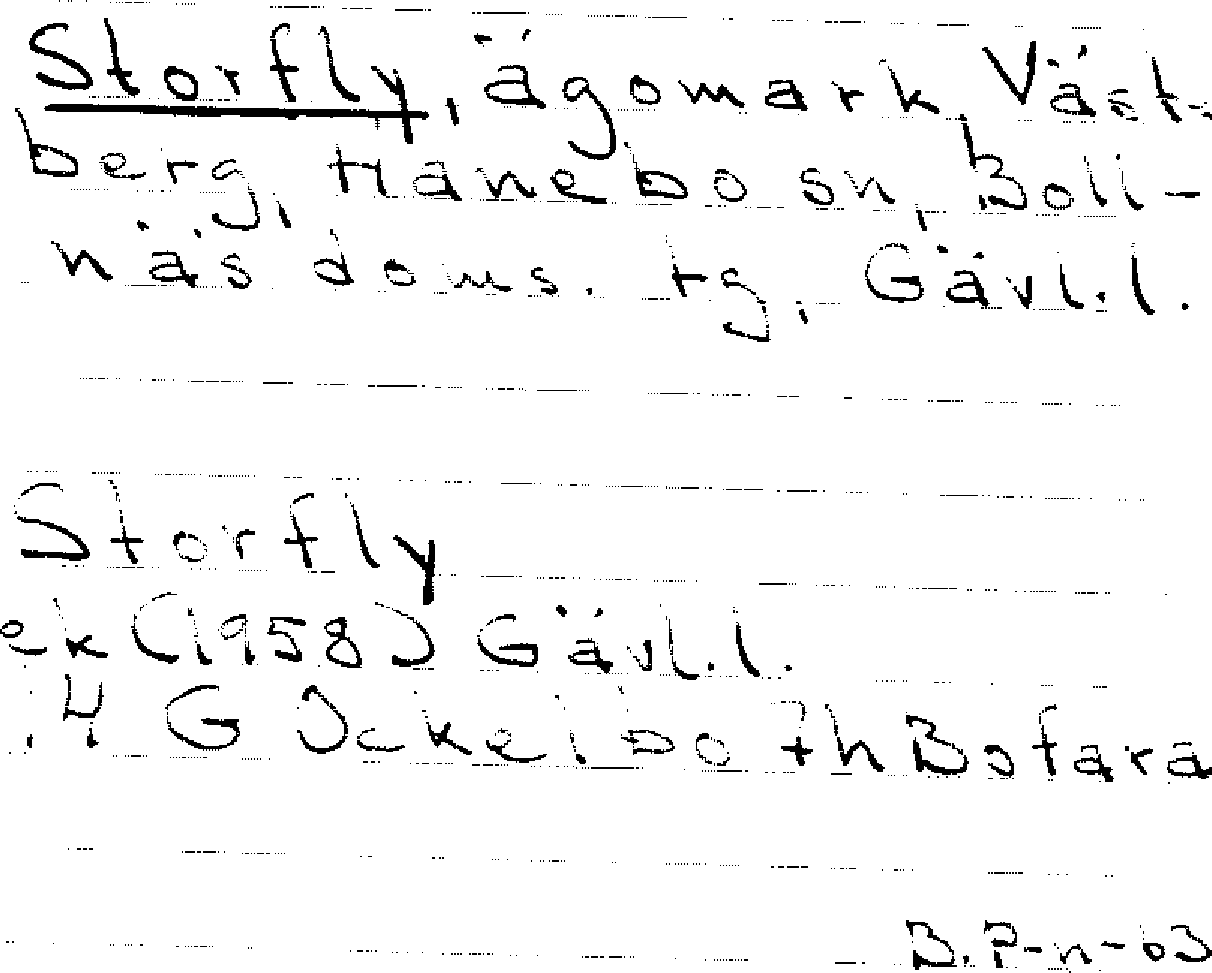 Storfly, ägomark, Väst-
berg, Hanebo sn, Boll-
näs doms. tg, Gävl.l.
Storfly
ek (1958) Gävl.l.
.4 G Ockelbo th Bofara
B. P-n-63